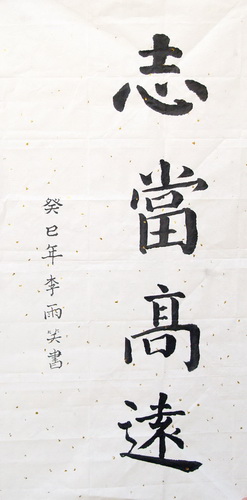 志當高遠
癸巳年李雨笑書